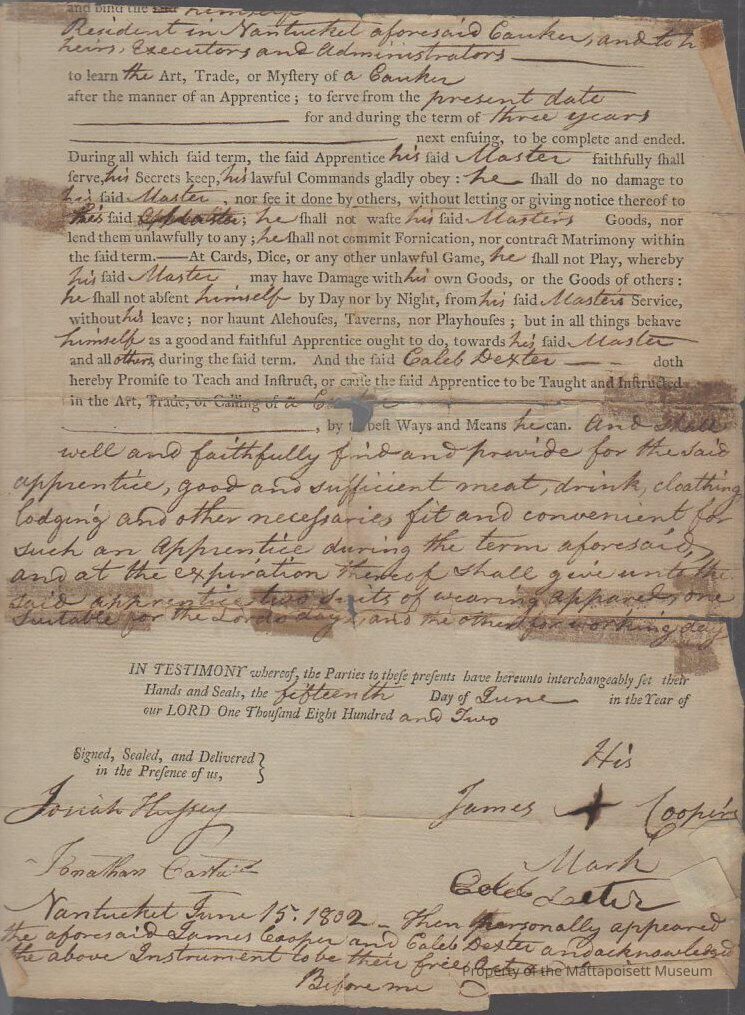 and bind the said himself
Resident in Nantucket aforesaid Cauker, and to h
heirs, Executors and Administrators
to learn the Art, Trade, or Myſtery of a Cauker
after the manner of an Apprentice; to ſerve from the present date
for and during the term of three years
next enſuing, to be complete and ended.
During all which ſaid term, the ſaid Apprentice his ſaid Master faithfully ſhall
ſerve, his Secrets keep, his lawful Commands gladly obey: he ſhall do no damage to
his ſaid Master, nor ſee it done by others, without letting or giving notice thereof to
his ſaid Master; he ſhall not waſte his ſaid Masters Goods, nor
lend them unlawfully to any; he ſhall not commit Fornication, nor contract Matrimony within
the ſaid term.——At Cards, Dice, or any other unlawful Game, he ſhall not Play, whereby
his ſaid Master may have Damage with his own Goods, or the Goods of others:
he ſhall not abſent himself by Day nor by Night, from his ſaid Master's Service,
without his leave; nor haunt Alehouſes, Taverns, nor Playhouſes; but in all things behave
himself as a good and faithful Apprentice ought to do, towards his ſaid Master
and all others, during the ſaid term. And the ſaid Caleb Dexter doth
hereby Promiſe to Teach and Inſtruct, or cauſe the ſaid Apprentice to be Taught and Inſtructed
in the Art, Trade, or Calling of a
, by beſt Ways and Means he can. And shall
well and faithfully find and provide for the said
apprentice, good and sufficient meat, drink, cloathing
lodging and other necessaries fit and convenient for
such an Apprentice during the term aforesaid,
and at the expiration thereof shall give unto the
said apprentice two suits of wearing apparel, one
suitable for the Lords days, and the other for working day
IN TESTIMONY whereof, the Parties to theſe preſents have hereunto interchangeably ſet their
Hands and Seals, the fifteenth Day of June in the Year of
our LORD One Thouſand Eight Hundred and Two
Signed, Sealed, and Delivered }
in the Preſence of us,
His
Josiah Hussey
James X Cooper's
Mark
Jonathan
Caleb Dexter
Nantucket June 15. 1802 - Then personally appeared
the aforesaid James Cooper and Caleb Dexter and acknowledged
the above Instrument to be their free
Before me
Property of the Mattapoisett Museum